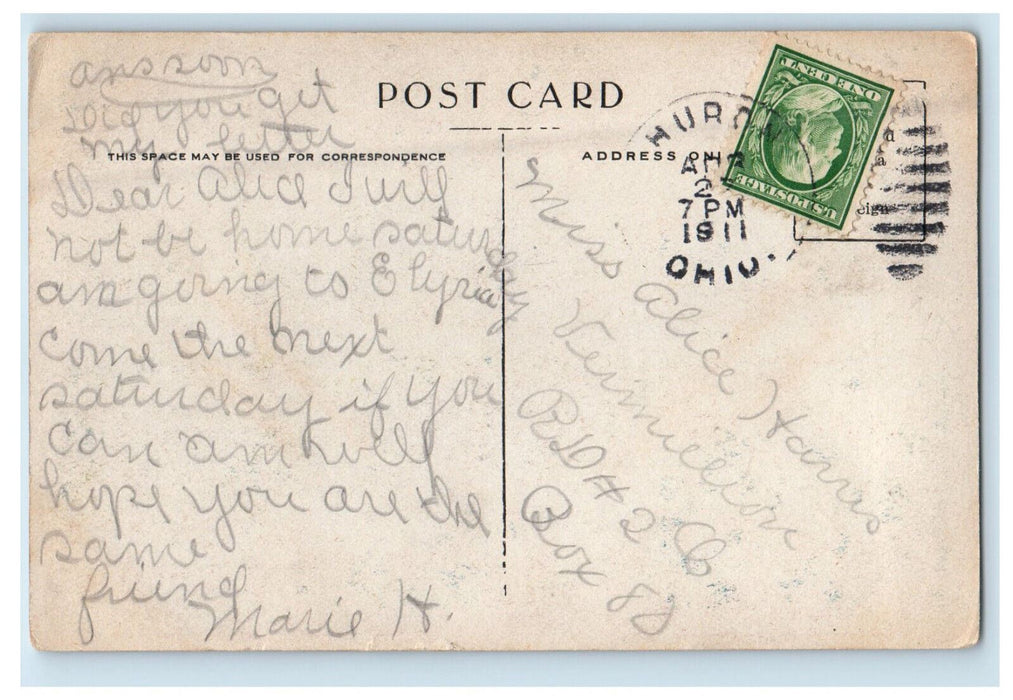 ans soon
Did you get
my letter
POST CARD
THIS SPACE MAY BE USED FOR CORRESPONDENCE
ADDRESS ON
Dear Alice I will
not be home saturday
am going to Elyria
come the next
saturday if you
can am well
hope you are the
same
friend
Marie H.
Miss Alice Harris
Vermillion
RD # 2 O
Box 88
HURON
APR
2
7 PM
1911
OHIO.
U.S. POSTAGE
ONE CENT